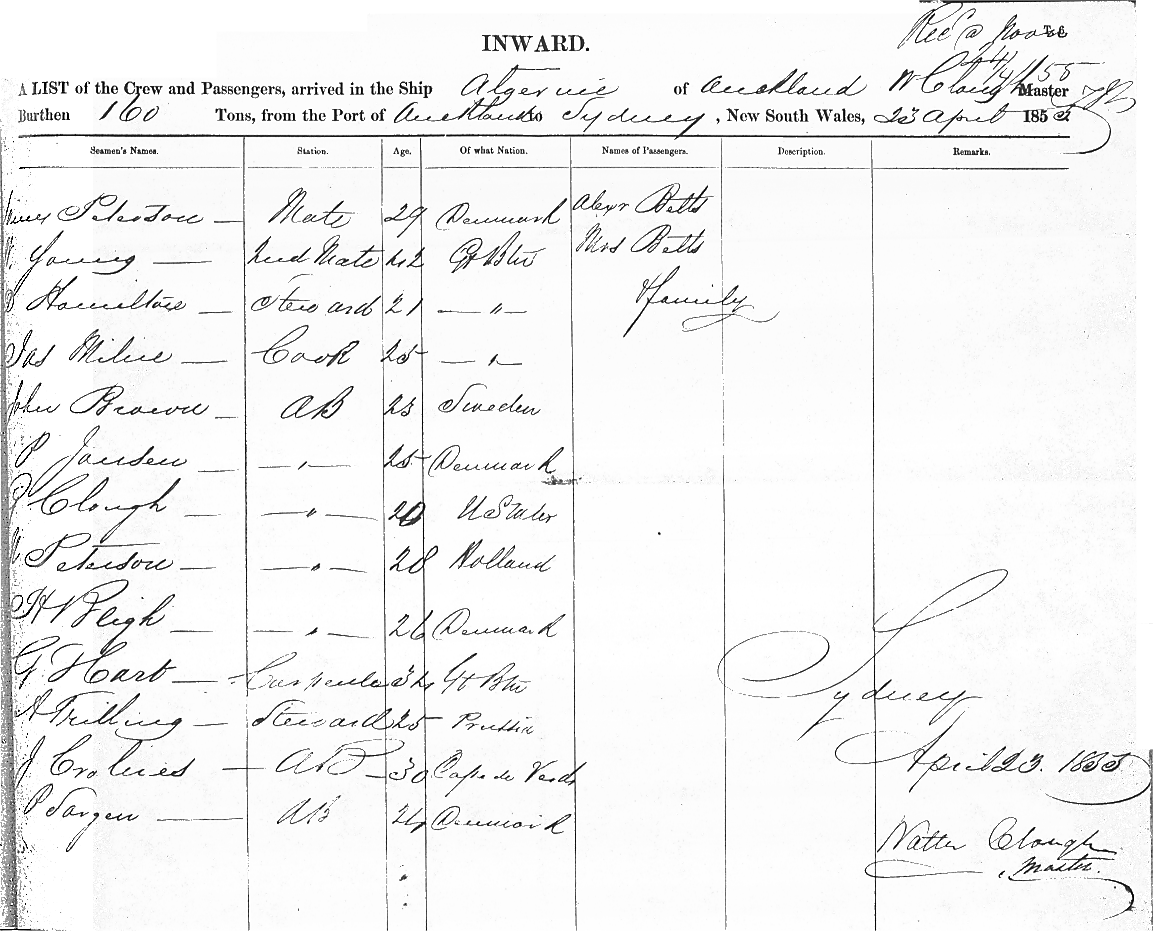 Rec @ Noon T.C
24/4/55
INWARD.
A LIST of the Crew and Passengers, arrived in the Ship Algerine of Auckland W Clough Master
Burthen 160 Tons, from the Port of Auckland to Sydney, New South Wales, 23 April 1855
Seamen's Names. Station. Age. Of what Nation. Names of Passengers. Description. Remarks.
Peterson — Mate 29 Denmark Alexr Betts
Young — 2nd Mate 42 Gt Btn Mrs Betts
Hamilton — Steward 21 — " — & family
Jas Milne — Cook 25 — " —
John Brown — AB 23 Sweden
P Jansen — — " — 25 Denmark
Clough — — " — 20 U States
Peterson — — " — 28 Holland
H Bleigh — — " — 26 Denmark
G Hart — Carpenter 34 Gt Btn
A Trilling — Steward 25 Prussia
Sydney
J Crolies — AB — 30 Cape de Verds
April 23. 1855
P Sargen — AB 24 Denmark
Walter Clough
Master.